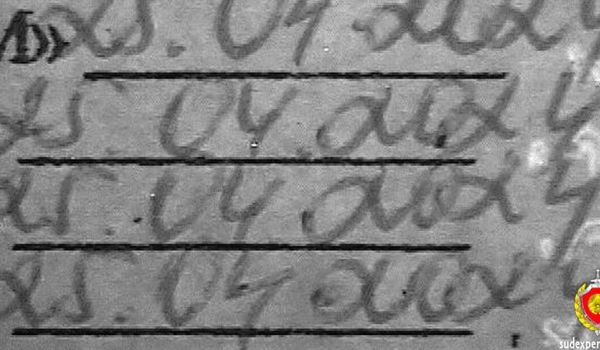 25.04.2024
25.04.2024
25.04.2024
25.04.202
sudexper